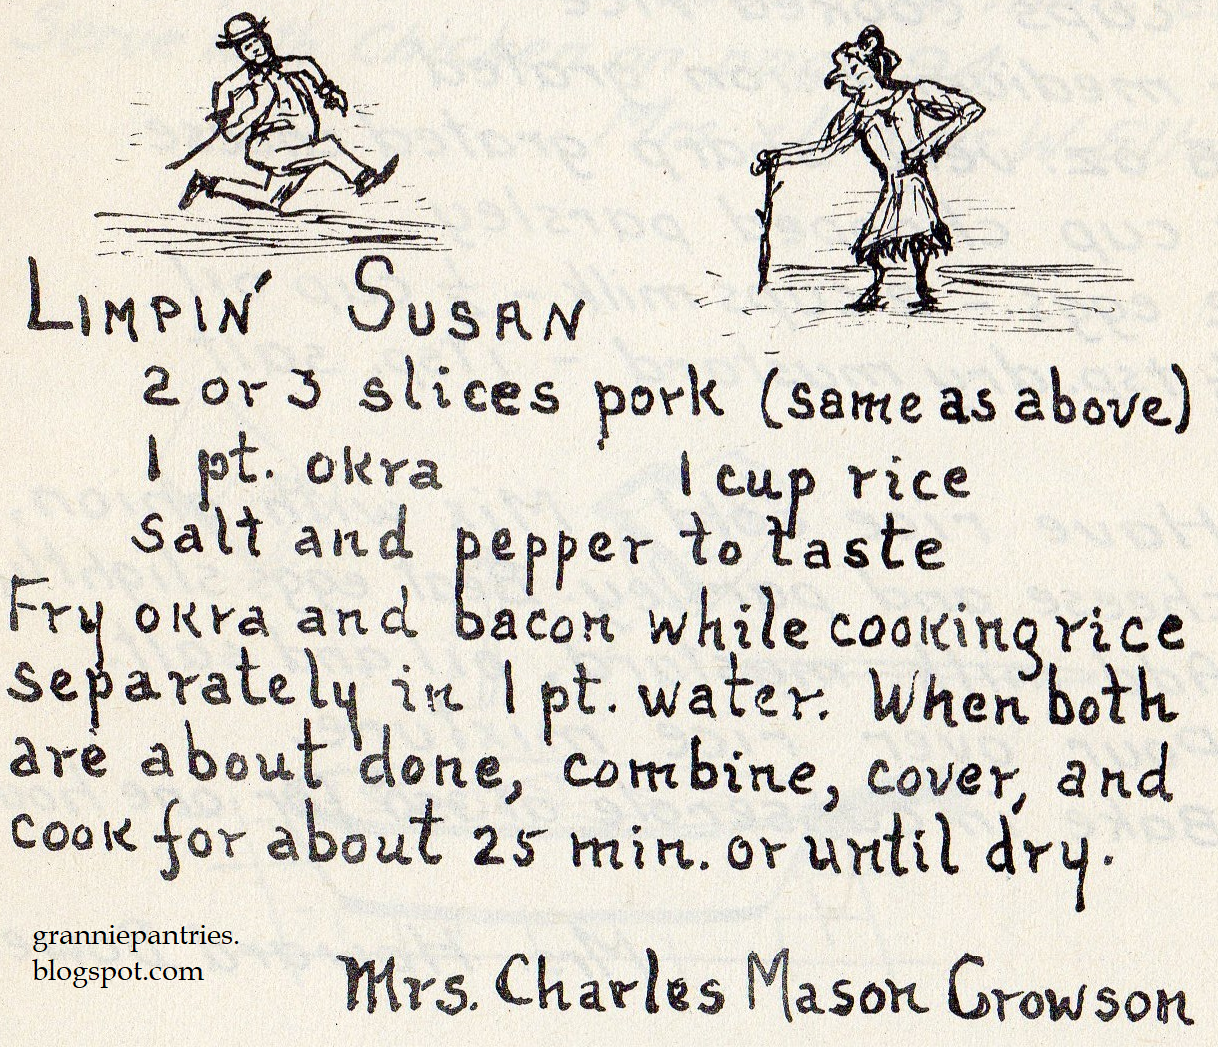 LIMPIN' SUSAN
2 or 3 slices pork (same as above)
1 pt. okra 1 cup rice
Salt and pepper to taste
Fry okra and bacon while cooking rice
separately in 1 pt. water. When both
are about done, combine, cover, and
cook for about 25 min. or until dry.
granniepantries.
blogspot.com
Mrs. Charles Mason Crowson